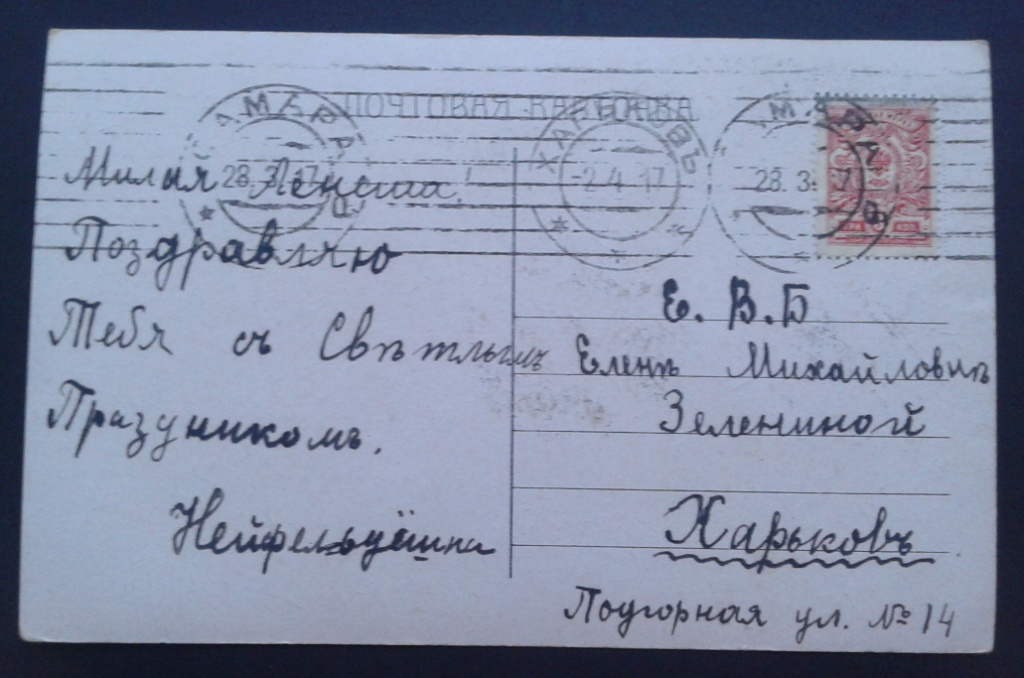 ПОЧТОВАЯ КАРТОЧКА
САМАРА
28.3.17
ХАРЬКОВЪ
-2.4.17
САМАРА
28.3.17
Милая Ленуша!
Поздравляю
Тебя съ Свѣтлымъ
Праздникомъ.
Е. В. Б
Еленѣ Михайловнѣ
Зелениной
Харьковъ
Подгорная ул. № 14